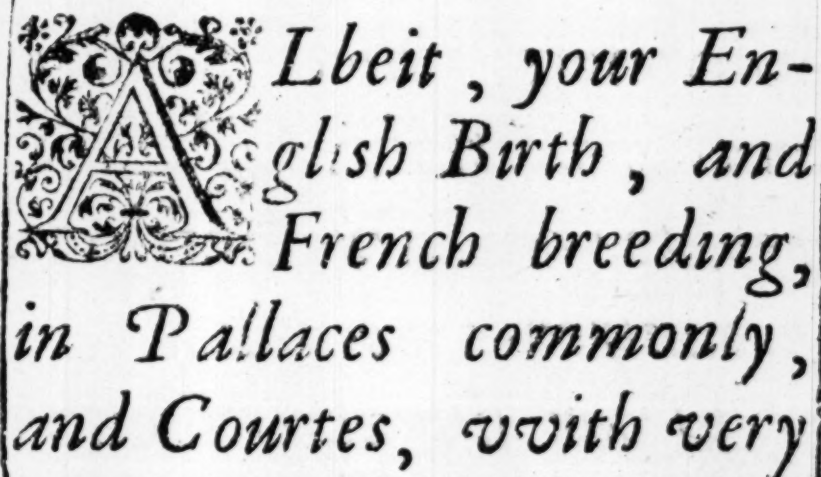 ALbeit, your En-
glish Birth, and
French breeding,
in Pallaces commonly,
and Courtes, vvith very